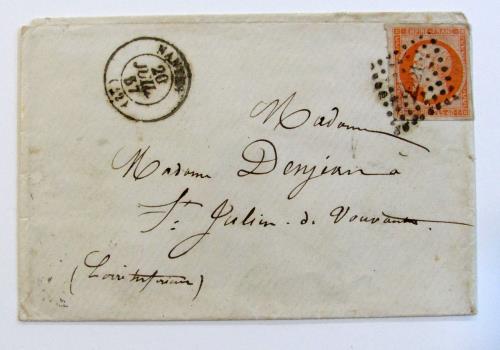 NANTES
20
JUIL.
57
(42)
EMPIRE FRANC
Madame
Madame Denjean à
St. Julien-de Vouvantes.
(Loire inférieure)